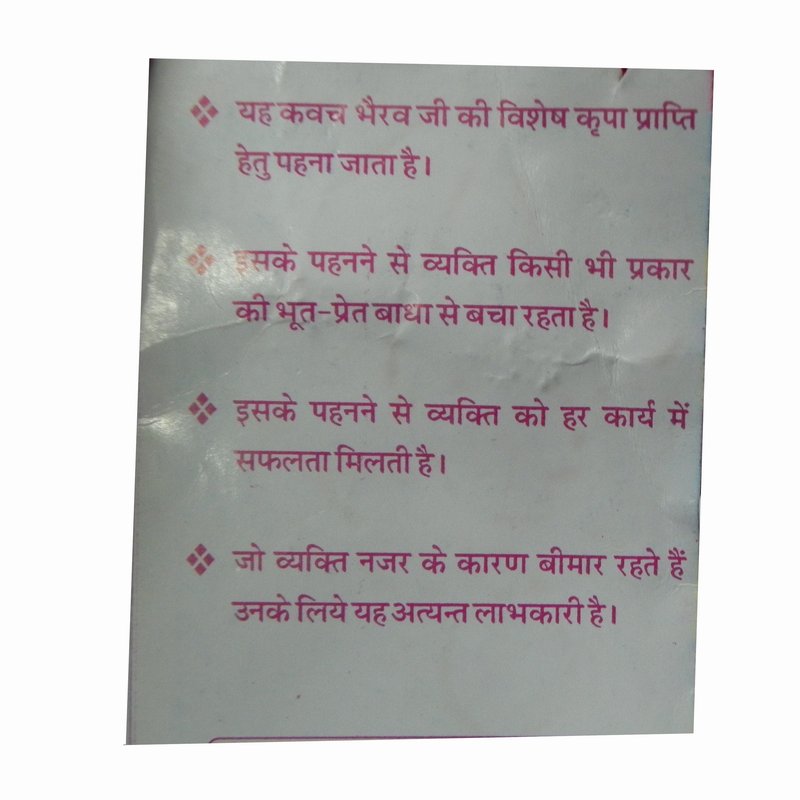 यह कवच भैरव जी की विशेष कृपा प्राप्ति
हेतु पहना जाता है।
इसके पहनने से व्यक्ति किसी भी प्रकार
की भूत-प्रेत बाधा से बचा रहता है।
इसके पहनने से व्यक्ति को हर कार्य में
सफलता मिलती है।
जो व्यक्ति नजर के कारण बीमार रहते हैं
उनके लिये यह अत्यन्त लाभकारी है।